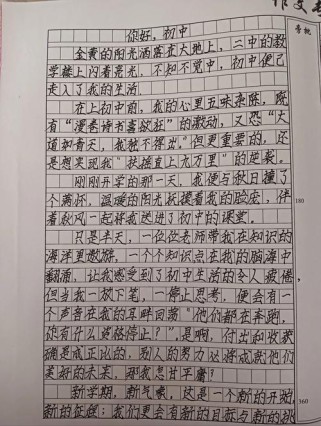 作文
你好，初中
金黄的阳光洒落在大地上，二中的教
学楼上闪着亮光，不知不觉中，初中便已
走入了我的生活。
在上初中前，我的心里五味杂陈，既
有“漫卷诗书喜欲狂”的激动，又恐“大
道如青天，我独不得出。”但更重要的，还
是想实现我“扶摇直上九万里”的逆袭。
刚刚开学的那一天，我便与秋日撞了
个满怀，温暖的阳光抚摸着我的脸庞，伴
着秋风一起将我送进了初中的课堂。
180
只是半天，一位位老师带我在知识的
海洋里遨游，一个个知识点在我的脑海中
翻涌，让我感受到了初中生活的令人疲惫，
但当我一放下笔，一停止思考，便会有一
个声音在我的耳畔回荡“他们都在奔跑，
你有什么资格停止？”，是啊，付出和收获
确是成正比的，别人的努力必将成就他们
美好的未来，那我怎甘平庸？
新学期，新气象，这是一个新的开始，
360
新的征途；我们更会有新的目标与新的挑